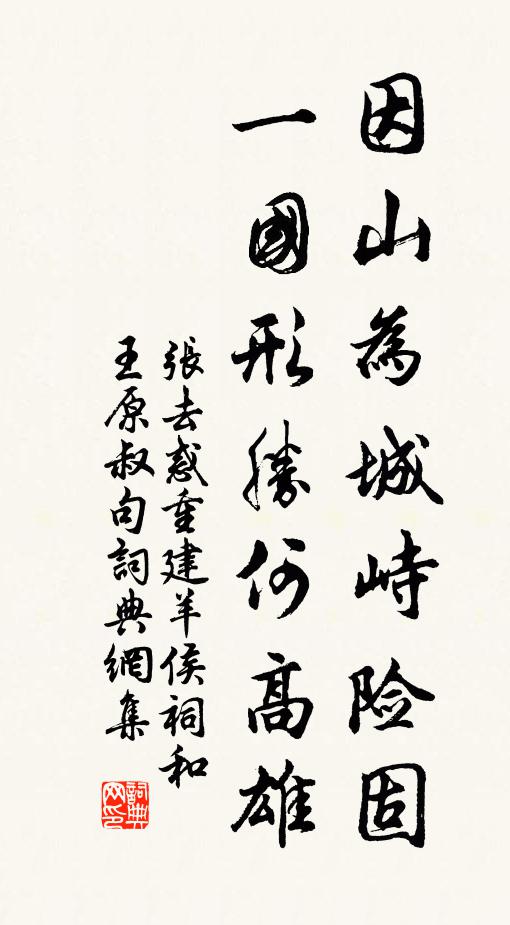 因山為城峙险固
一國形勝何高雄
張去惑重建羊侯祠和
王原叔句詞典網集
詞典网印